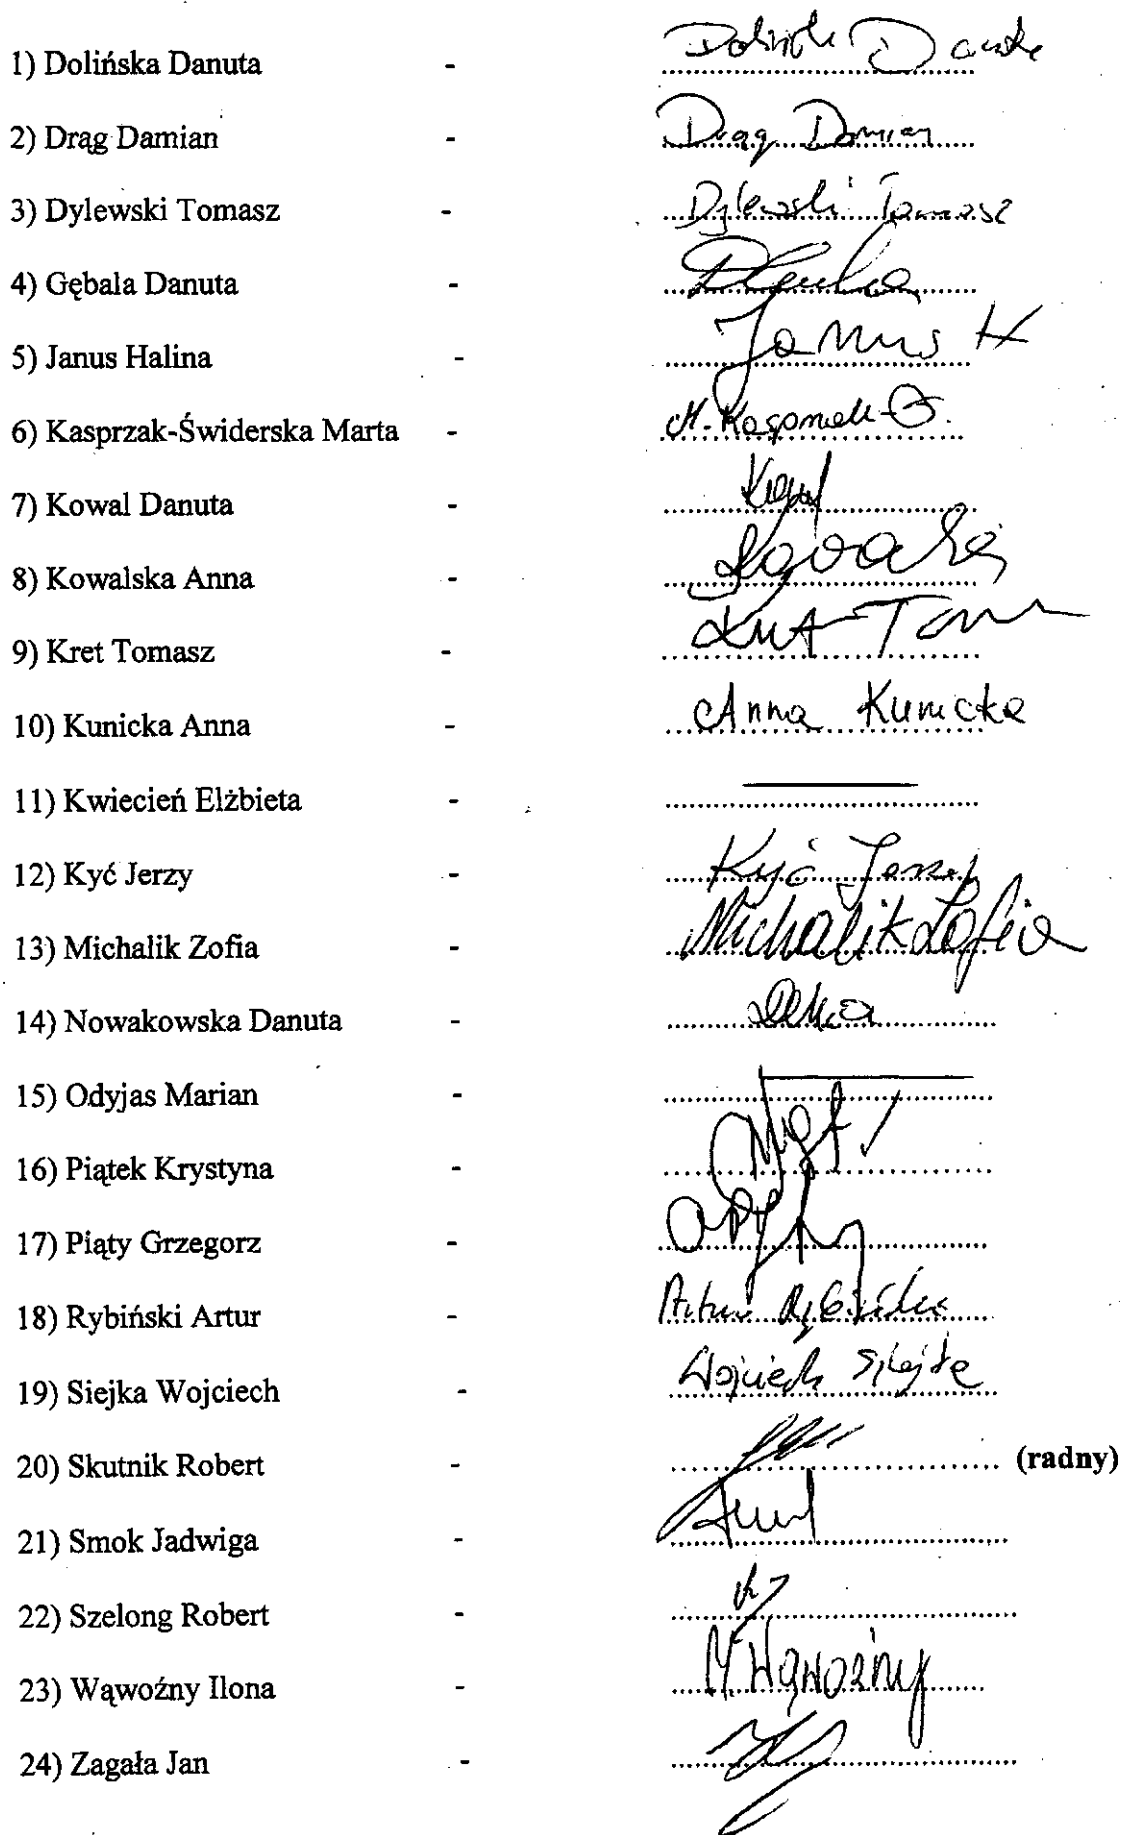 1) Dolińska Danuta - Dolińska Danuta
2) Drąg Damian - Drąg Damian
3) Dylewski Tomasz - Dylewski Tomasz
4) Gębala Danuta -
5) Janus Halina - Janus H
6) Kasprzak-Świderska Marta - M. Kasprzak-Ś.
7) Kowal Danuta - Kowal
8) Kowalska Anna - Kowalska
9) Kret Tomasz - Kret Tom
10) Kunicka Anna - Anna Kunicka
11) Kwiecień Elżbieta -
12) Kyć Jerzy - Kyć Jerzy
13) Michalik Zofia - Michalik Zofia
14) Nowakowska Danuta -
15) Odyjas Marian -
16) Piątek Krystyna -
17) Piąty Grzegorz -
18) Rybiński Artur - Artur Rybiński
19) Siejka Wojciech - Wojciech Siejka
20) Skutnik Robert - (radny)
21) Smok Jadwiga -
22) Szelong Robert -
23) Wąwoźny Ilona - Wąwoźny
24) Zagała Jan -